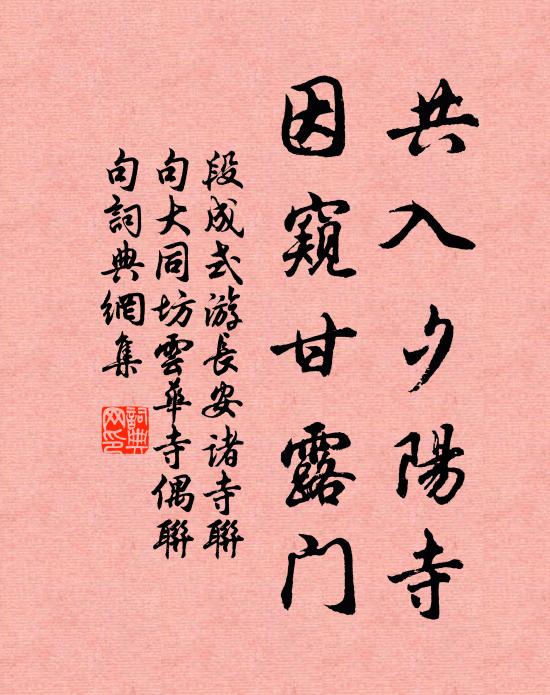 共入夕陽寺
因窺甘露门
段成式游長安诸寺聯
句大同坊雲華寺偶聯
句詞典網集
詞典
网印